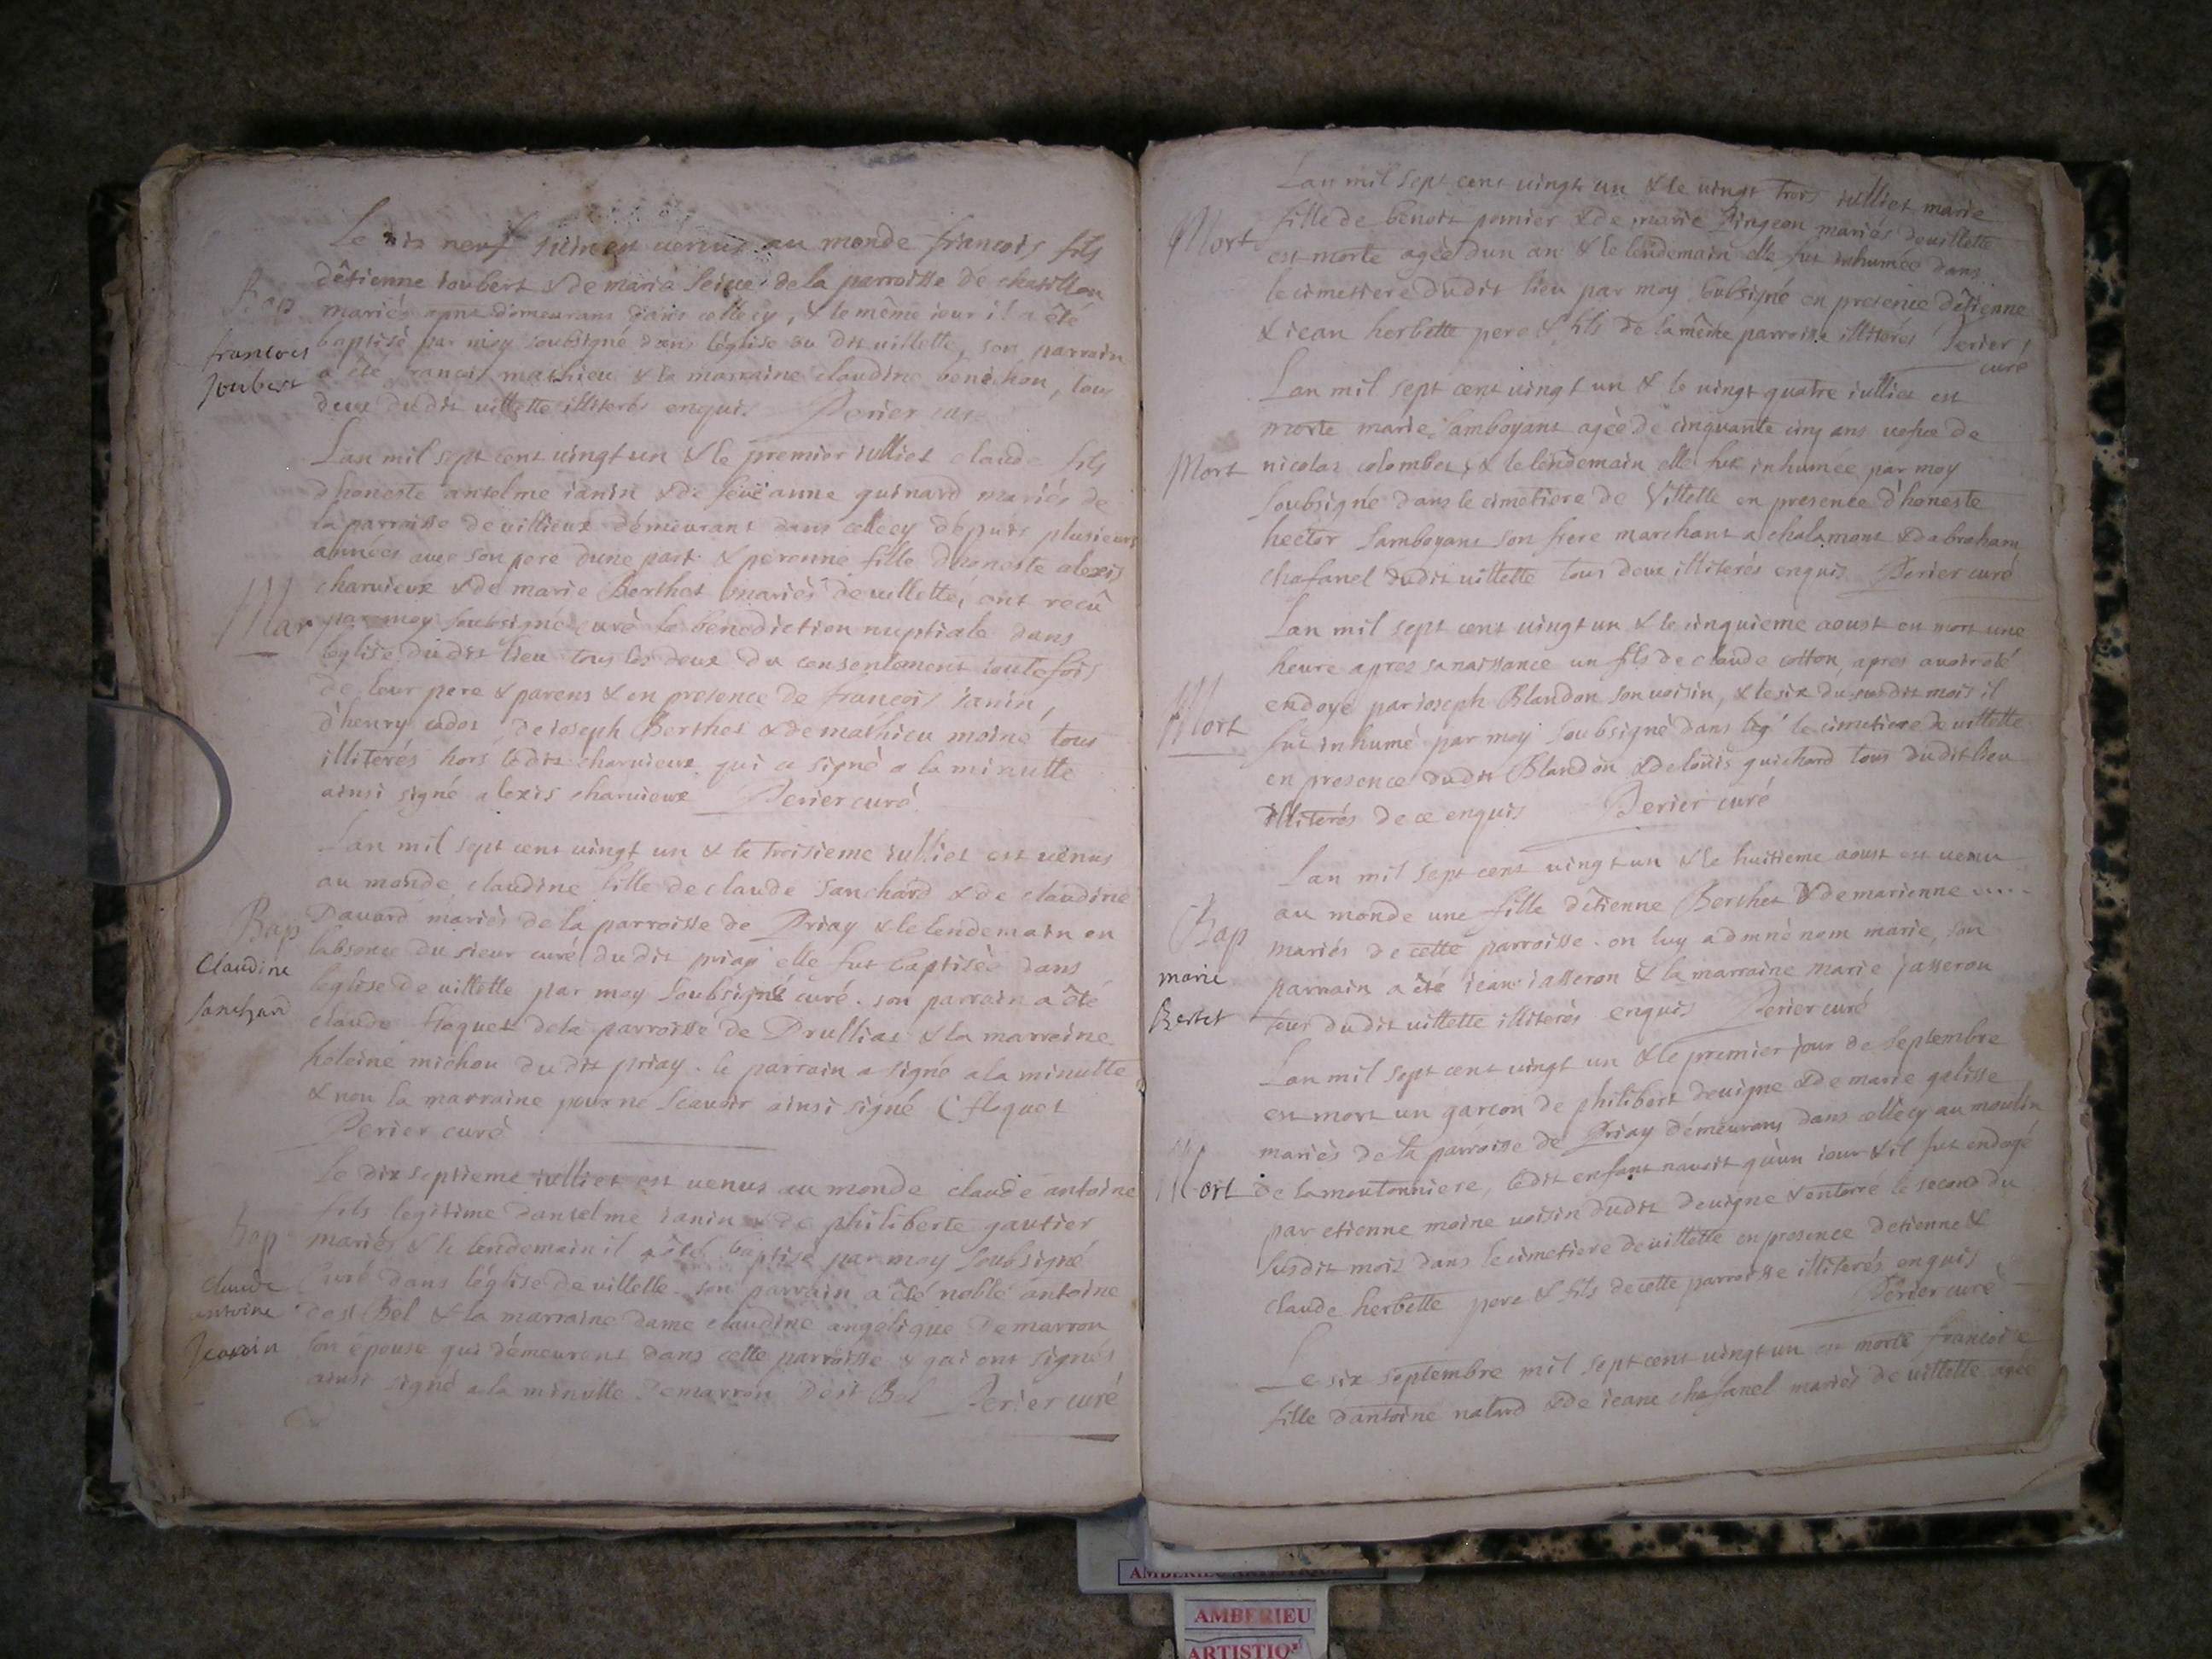 Le dix neuf juin est venus au monde francois fils
Bap
d'êtienne ioubert & de maria de la parroisse de chatillon
mariés demeurans dans cellecy, & le même iour il a êté
francois
Joubert
baptisé par moy soubsigné dans léglise du dit villette, son parrain
a êté francois mathieu & la marraine claudine benichon, tous
deux dudit villette illiterés enquis Perier curé
Lan mil sept cent vingt un & le premier iulliet claude fils
dhoneste anselme ianin & de feüe anne guinard mariés de
la parroisse de villieux démeurant dans cellecy dépuis plusieurs
années avec son pere dune part & peronne fille dhoneste alexis
Mar
charvieux & de marie Berthet mariés de villette, ont recû
par moy soubsigné curé la benediction nuptiale dans
léglise dudit lieu tous les deux du consentement toutefois
de leur pere & parens & en presence de francois ianin,
d'henry cados de ioseph Berthet & de mathieu moine tous
illiterés hors ledit charvieux qui a signé a la minutte
ainsi signé alexis charvieux Perier curé
Lan mil sept cent vingt un & le troisieme iulliet est venus
au monde claudine fille de claude Sanchard & de claudine
Bap
Claudine
Sanchard
Davard mariés de la parroisse de Priay & le lendemain en
labsence du sieur curé dudit priay elle fut baptisée dans
léglise de villette par moy soubsigné curé. son parrain a êté
claude floquet de la parroisse de Drullias & la marraine
heleine michon dudit priay. le parrain a signé a la minutte
& non la marraine pour ne scavoir ainsi signé C floquet
Perier curé
Le dix septieme iulliet est venus au monde claude antoine
Bap
fils legitime danselme ianin & de philiberte gautier
mariés & le lendemain il a êté baptisé par moy soubsigné
Claude
antoine
Jeanin
curé dans léglise de villette. son parrain a êté noble antoine
dest Bel & la marraine dame claudine angelique Demarron
son épouse qui démeurent dans cette parroisse & qui ont signés
ainsi signé a la minutte Demarron Dest Bel Perier curé
Lan mil sept cent vingt un & le vingt trois iulliet marie
Mort
fille de benoit pomier & de marie Pingeon mariés de villette
est morte agée dun an & le lendemain elle fut inhumée dans
le cimetiere dudit lieu par moy soubsigné en presence d'êtienne
& iean herbette pere & fils de la même parroisse illiterés Perier
curé
Lan mil sept cent vingt un & le vingt quatre iulliet est
morte marie Samboyant agée de cinquante cinq ans vefve de
Mort
nicolas colombet, & le lendemain elle fut inhumée par moy
soubsigné dans le cimetiere de Villette en presence d'honeste
hector Samboyant son frere marchant a chalamont & dabraham
chafanel dudit villette tous deux illiterés enquis Perier curé
Lan mil sept cent vingt un & le cinquieme aoust est mort une
heure apres sa naissance un fils de claude cotton, apres avoir eté
Mort
endoyé par ioseph Blandon son voisin, & le six du susdit mois il
fut inhumé par moy soubsigné dans lég le cimetiere de villette
en presence dudit Blandon & de loüis guichard tous dudit lieu
illiterés de ce enquis Perier curé
Lan mil sept cent vingt un & le huitieme aoust est venu
au monde une fille d'êtienne Berthet & de marienne ....
Bap
marie
Bertet
mariés de cette parroisse. on luy a donné nom marie, son
parrain a êté iean iasseron & la marraine marie jasseron
tous dudit villette illiterés enquis Perier curé
Lan mil sept cent vingt un & le premier jour de septembre
est mort un garcon de philibert devigne & de marie galisse
mariés de la parroisse de Priay démeurans dans cellecy au moulin
Mort
de la moutonniere, ledit enfant navoit qu'un iour & il fut endoyé
par etienne moine voisin dudit devigne & enterré le second du
susdit mois dans le cimetiere de villette en presence detienne &
claude herbette pere & fils de cette parroisse illiterés enquis
Perier curé
Le six septembre mil sept cent vingt un est morte francoise
fille dantoine natard & de ieane chafanel mariés de villette agée
AMBERIEU ARTISTIQUE
AMBERIEU
ARTISTIQ